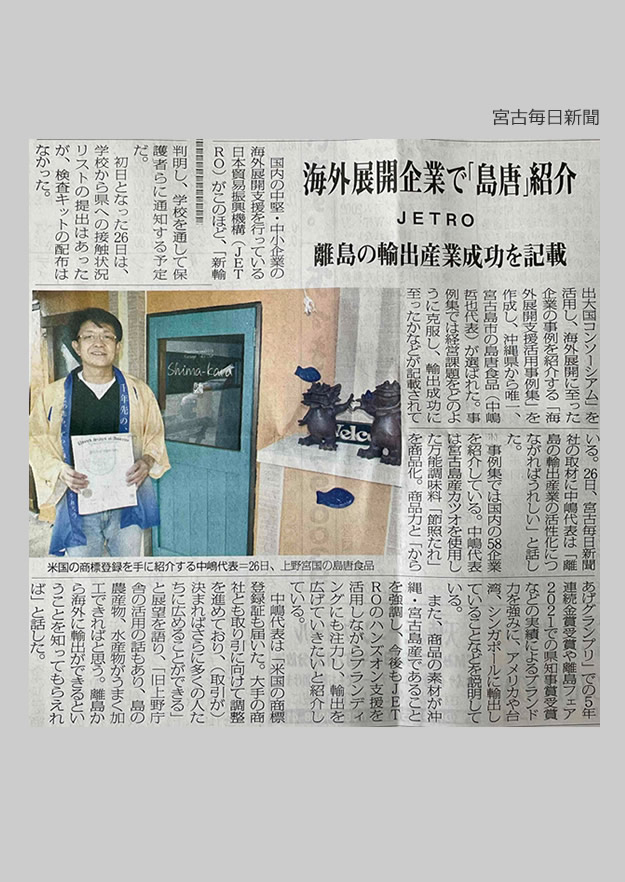 宮古毎日新聞
海外展開企業で「島唐」紹介
JETRO
離島の輸出産業成功を記載
国内の中堅・中小企業の
海外展開支援を行っている
日本貿易振興機構（JET
RO）がこのほど、「新輸
出大国コンソーシアム」を
活用し、海外展開に至った
企業の事例を紹介する「海
外展開支援活用事例集」を
作成し、沖縄県から唯一、
宮古島市の島唐食品（中嶋
哲也代表）が選ばれた。事
例集では経営課題をどのよ
うに克服し、輸出成功に
至ったかなどが記載されて
いる。26日、宮古毎日新聞
社の取材に中嶋代表は「離
島の輸出産業の活性化につ
ながればうれしい」と話し
た。
事例集では国内の58企業
を紹介している。中嶋代表
は宮古島産カツオを使用し
た万能調味料「節照たれ」
を商品化。商品力と「から
あげグランプリ」での5年
連続金賞受賞や離島フェア
2021での県知事賞受賞
などの実績によるブランド
力を強みに、アメリカや台
湾、シンガポールに輸出し
ていることなどを説明して
いる。
また、商品の素材が沖
縄・宮古島産であること
を強調し、今後もJET
ROのハンズオン支援を
活用しながらブランディ
ングにも注力し、輸出を
広げていきたいと紹介し
ている。
中嶋代表は「米国の商標
登録証も届いた。大手の商
社とも取り引に向けて調整
を進めており、（取引が）
決まればさらに多くの人た
ちに広めることができる」
と展望を語り、「旧上野庁
舎の活用の話もあり、島の
農産物、水産物がうまく加
工できればと思う。離島か
ら海外に輸出ができるとい
うことを知ってもらえれ
ば」と話した。
判明し、学校を通して保
護者らに通知する予定
だ。
初日となった26日は、
学校から県への接触状況
リストの提出はあった
が、検査キットの配布は
なかった。
Shima-kara
Welco
米国の商標登録を手に紹介する中嶋代表＝26日、上野宮国の島唐食品